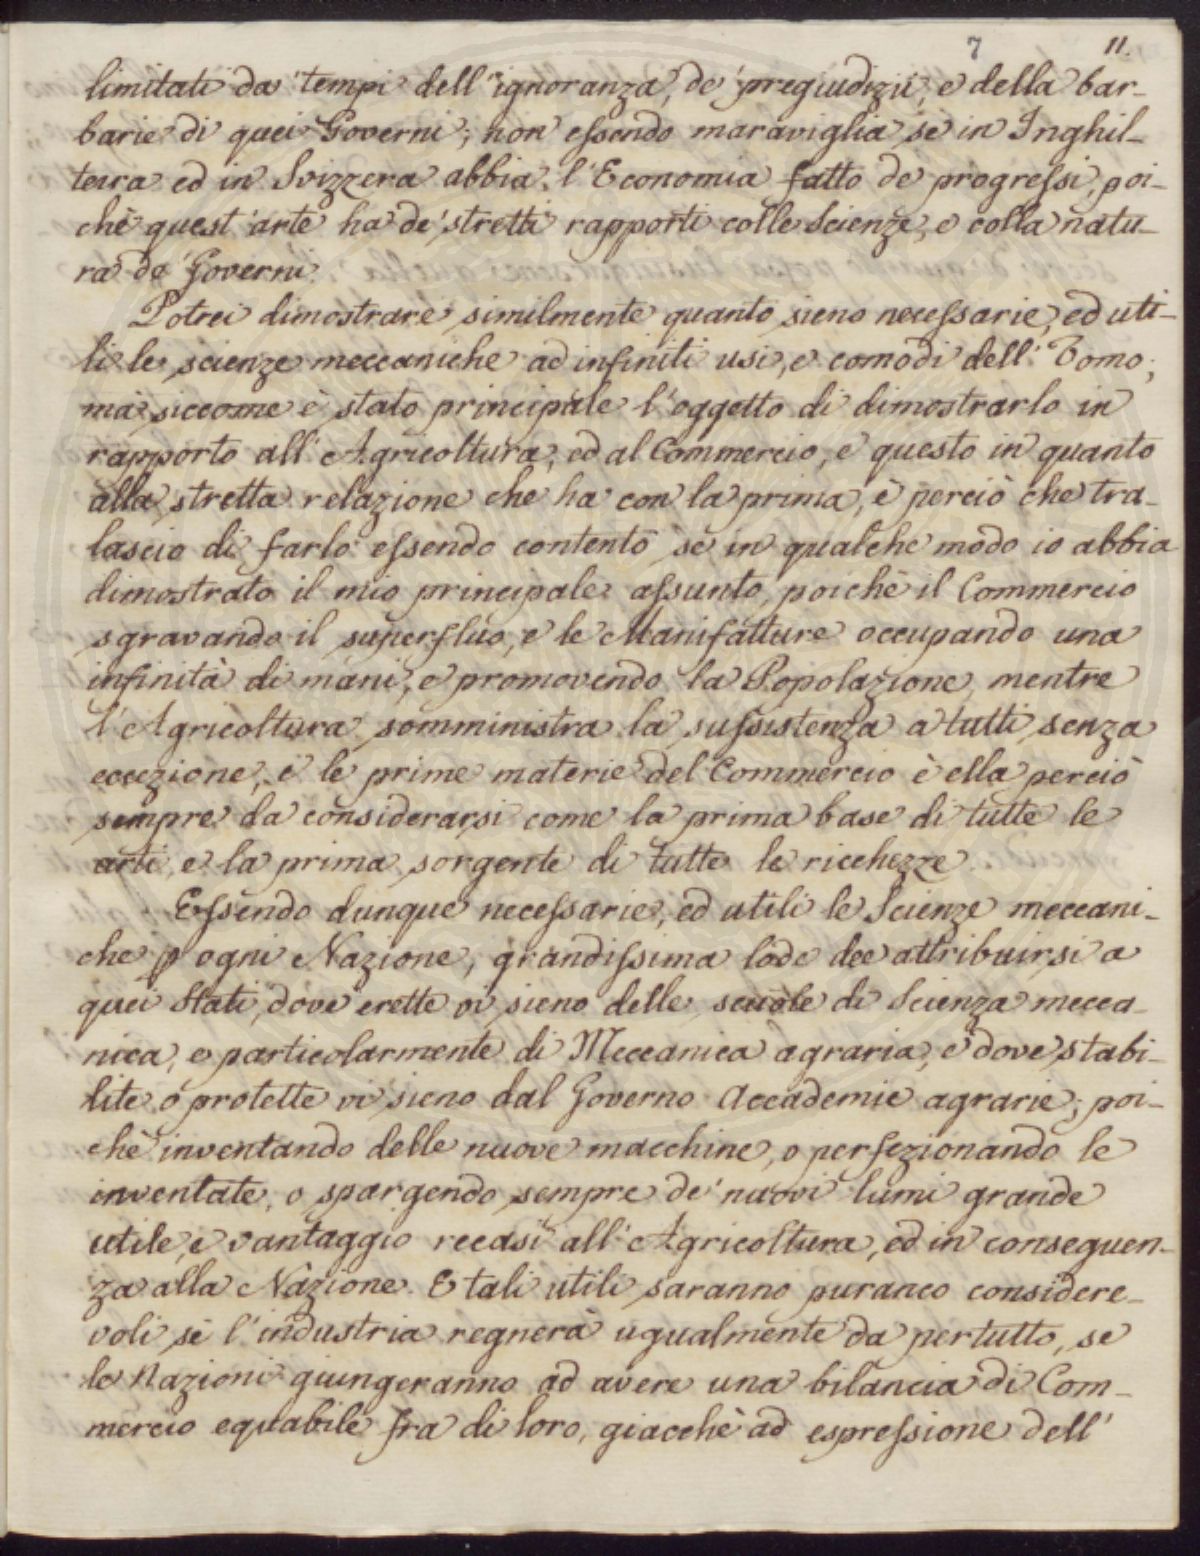 7 11.
limitati da' tempi dell'ignoranza, de' pregiudizii, e della bar-
barie di quei Governi; non essendo maraviglia se in Inghil-
terra ed in Svizzera abbia l'Economia fatto de' progressi, poi-
chè quest'arte ha de' stretti rapporti colle Scienze, e colla natu-
ra de' Governi.
Potrei dimostrare similmente quanto sieno necessarie, ed uti-
li le scienze meccaniche ad infiniti usi, e comodi dell'Uomo;
ma siccome è stato principale l'oggetto di dimostrarlo in
rapporto all'Agricoltura, ed al Commercio, e questo in quanto
alla stretta relazione che ha con la prima, è perciò che tra-
lascio di farlo essendo contento se in qualche modo io abbia
dimostrato il mio principale assunto, poichè il Commercio
sgravando il superfluo, e le Manifatture occupando una
infinità di mani, e promovendo la Popolazione mentre
l'Agricoltura somministra la sussistenza a tutti senza
eccezione, e le prime materie del Commercio è ella perciò
sempre da considerarsi come la prima base di tutte le
arti, e la prima sorgente di tutte le ricchezze.
Essendo dunque necessarie, ed utili le Scienze meccani-
che p ogni Nazione, grandissima lode dee attribuirsi a
quei Stati, dove erette vi sieno delle scuole di Scienza mecca-
nica, e particolarmente di Meccanica agraria, e dove stabi-
lite o protette vi sieno dal Governo Accademie agrarie; poi-
chè inventando delle nuove macchine, o perfezionando le
inventate, o spargendo sempre de' nuovi lumi grande
utile, e vantaggio recasi all'Agricoltura, ed in conseguen-
za alla Nazione. E tali utili saranno puranco considere-
voli se l'industria regnerà ugualmente da pertutto, se
le Nazioni giungeranno ad avere una bilancia di Com-
mercio equabile fra di loro, giacchè ad espressione dell'